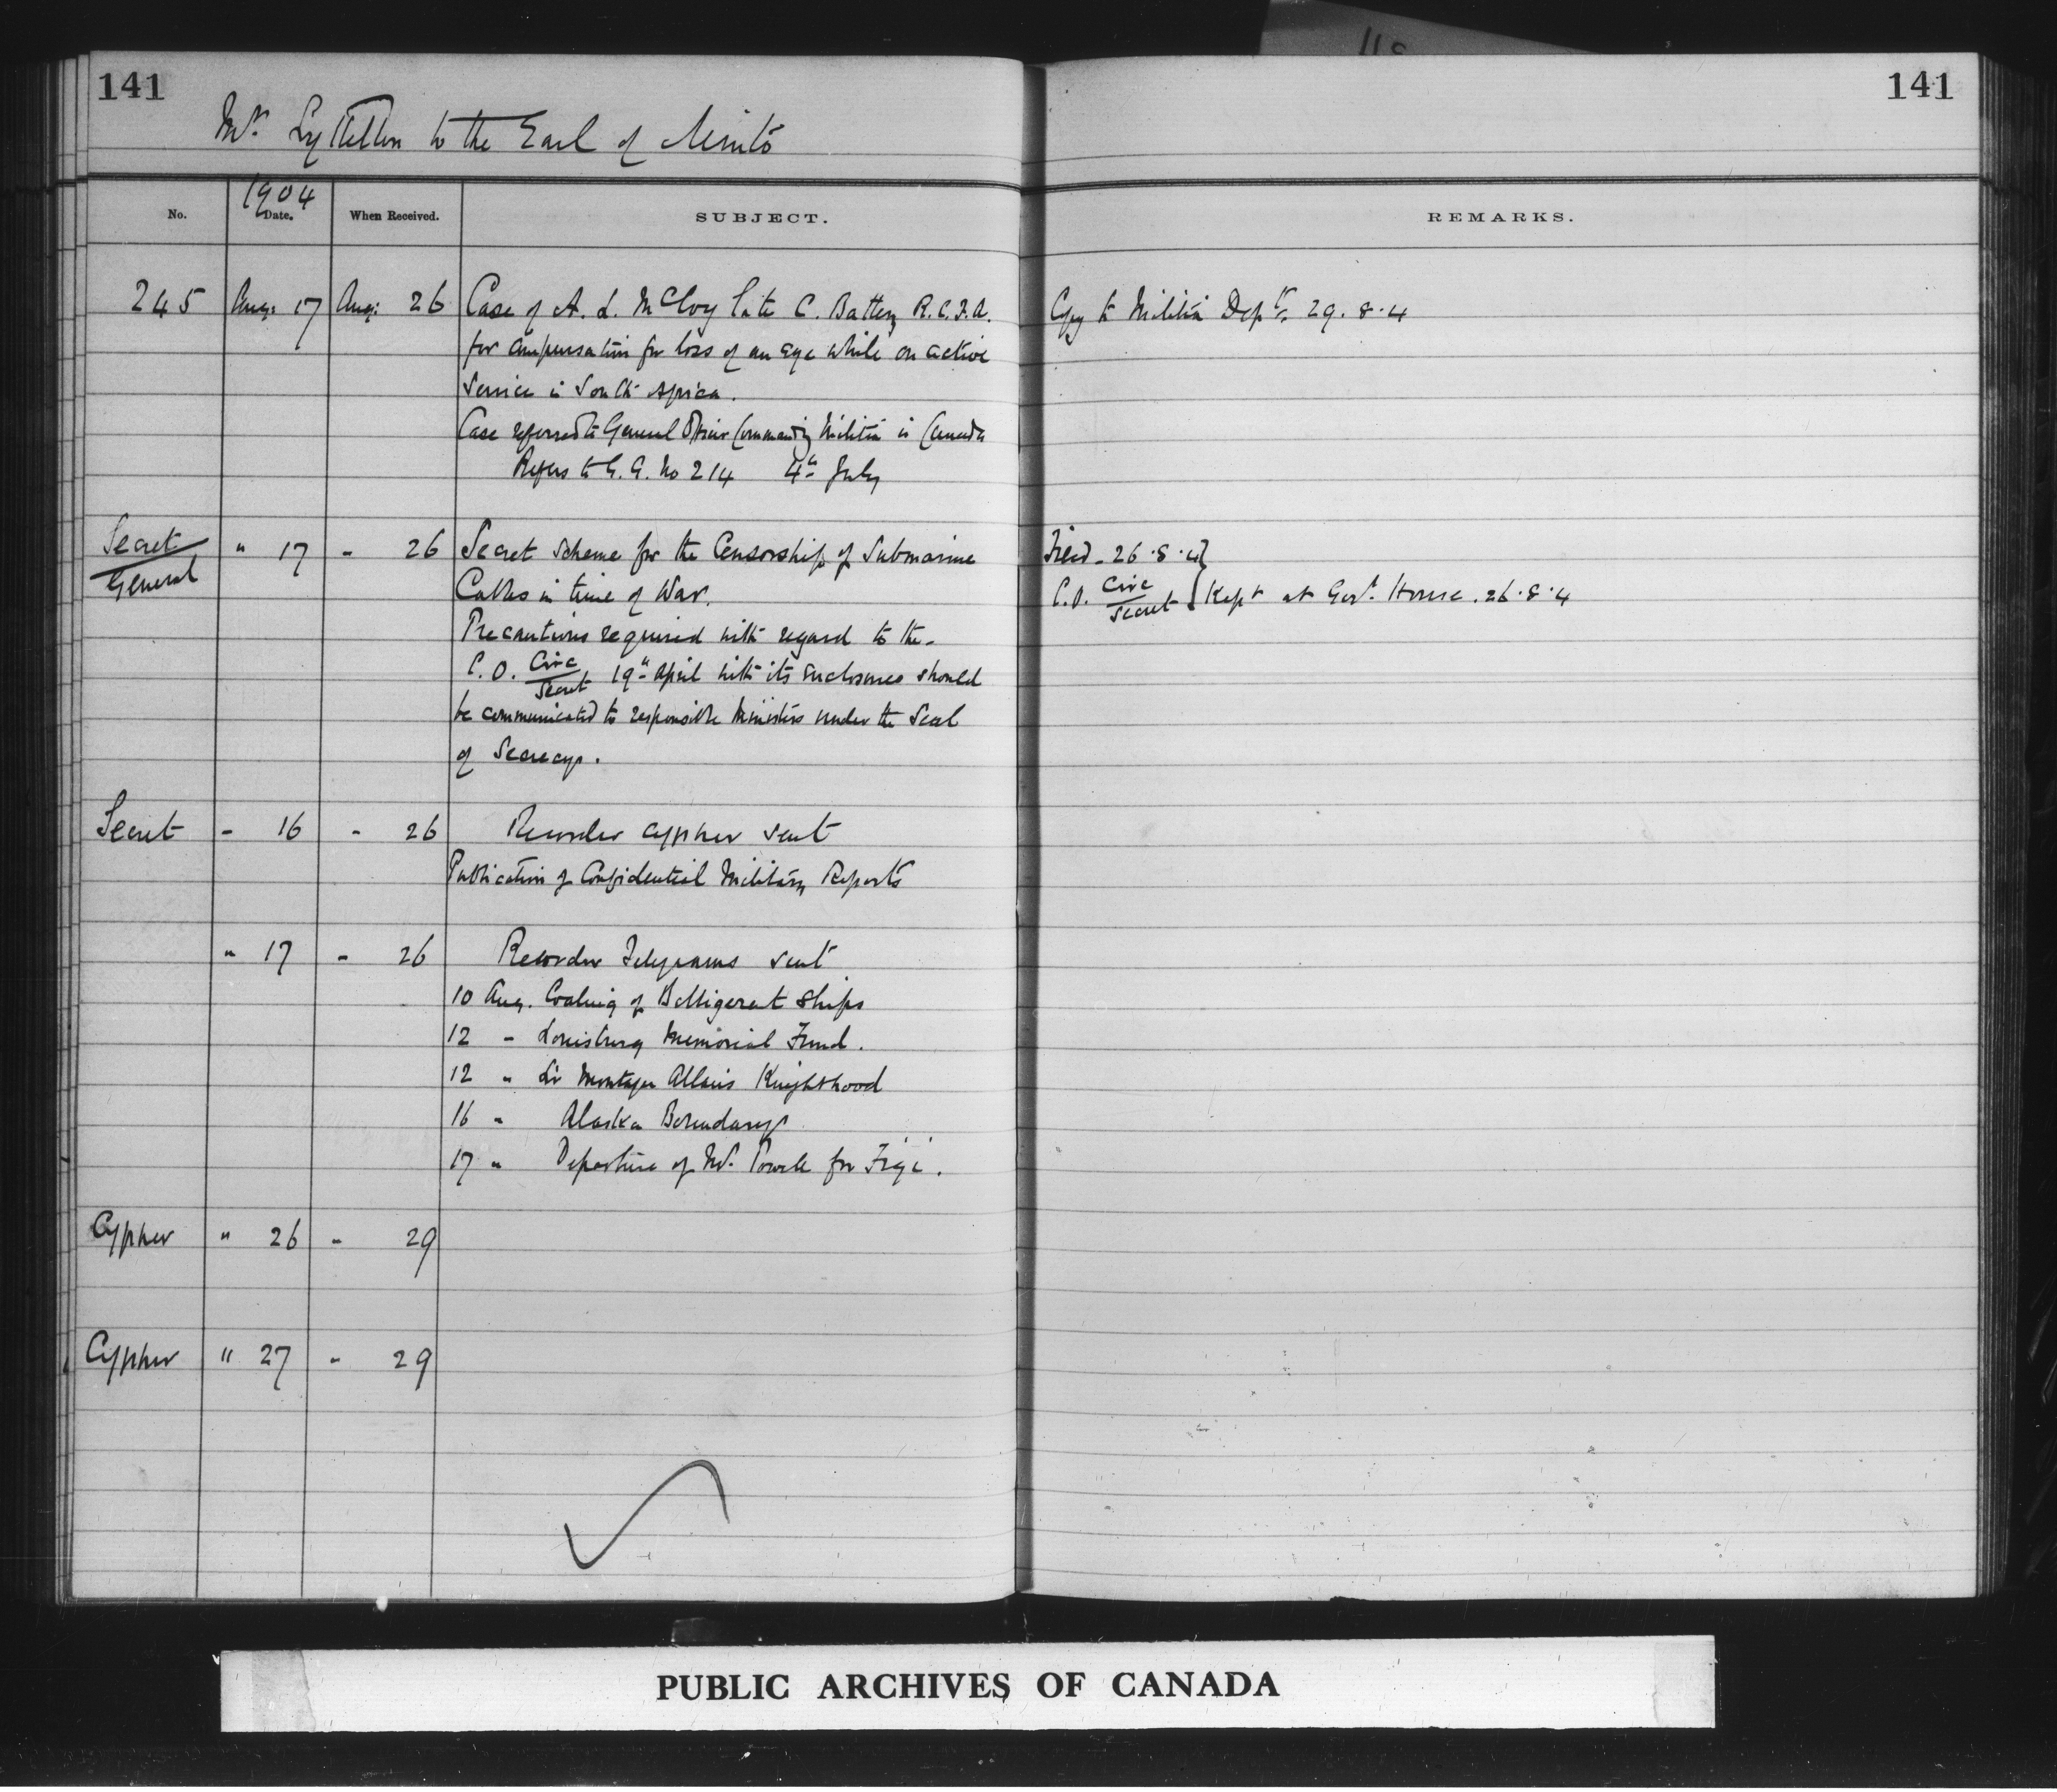 141
141
Mr. Lyttelton to the Earl of Minto
1904
No. Date. When Received. SUBJECT. REMARKS.
245 Aug: 17 Aug: 26 Case of A. L. McCloy late C. Battery R.C.F.A. Copy to Militia Dept. 29.8.4
for compensation for loss of an eye while on active
Service in South Africa.
Case referred to General Officer Commanding Militia in Canada
Refers to G. G. No 214 4th July
Secret/General " 17 " 26 Secret Scheme for the Censorship of Submarine Filed. 26.8.4}
Cables in time of War. C.O. Circ/Secret { Kept at Govt. House. 26.8.4
Precautions required with regard to the
C. O. Circ/Secret 19th April with its enclosures should
be communicated to responsible Ministers under the Seal
of Secrecy.
Secret " 16 " 26 Recorder cypher sent
Publication of Confidential Military Reports
" 17 " 26 Recorder Telegrams sent
10 Aug. Coaling of Belligerent Ships
12 " Louisburg Memorial Fund.
12 " Sir Montagu Allan's Knighthood
16 " Alaska Boundary
17 " Departure of Mr. Powell for Figi.
Cypher " 26 " 29
Cypher " 27 " 29
PUBLIC ARCHIVES OF CANADA